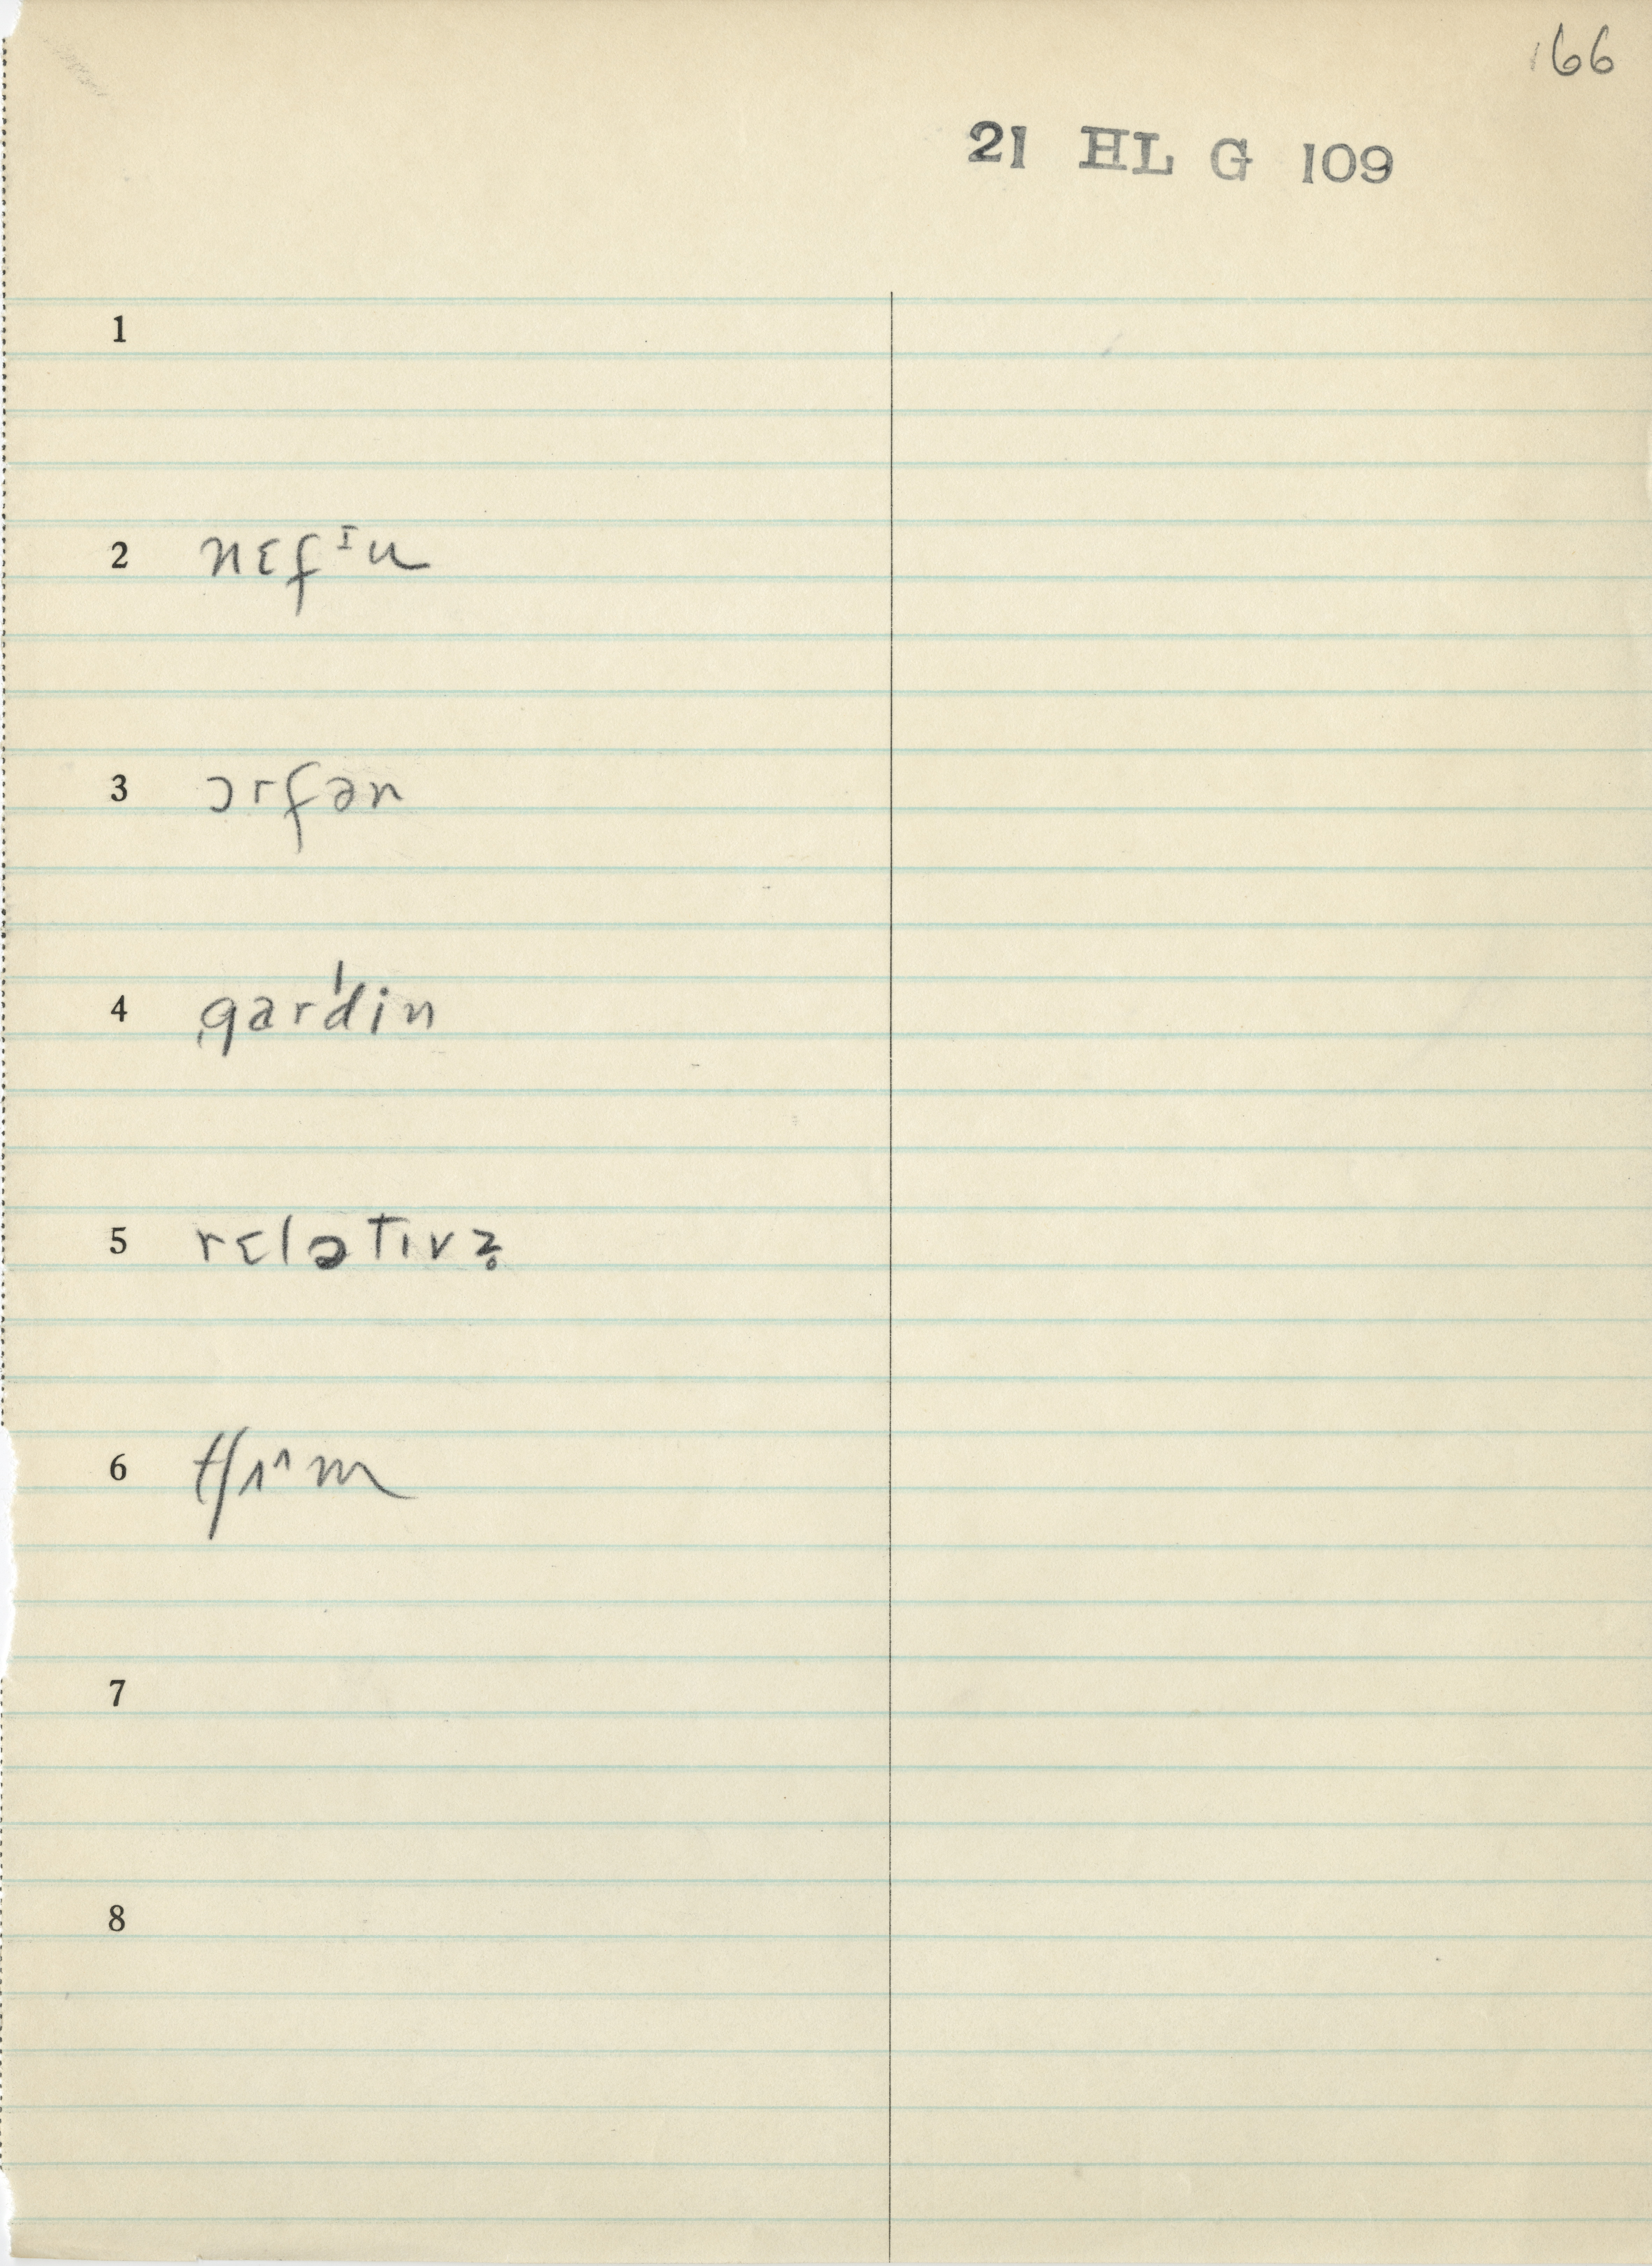 166
21 HL G 109
1
2 nɛfᶦu
3 ɔrfən
4 gar'din
5 rɛlətɪvz̥
6
7
8